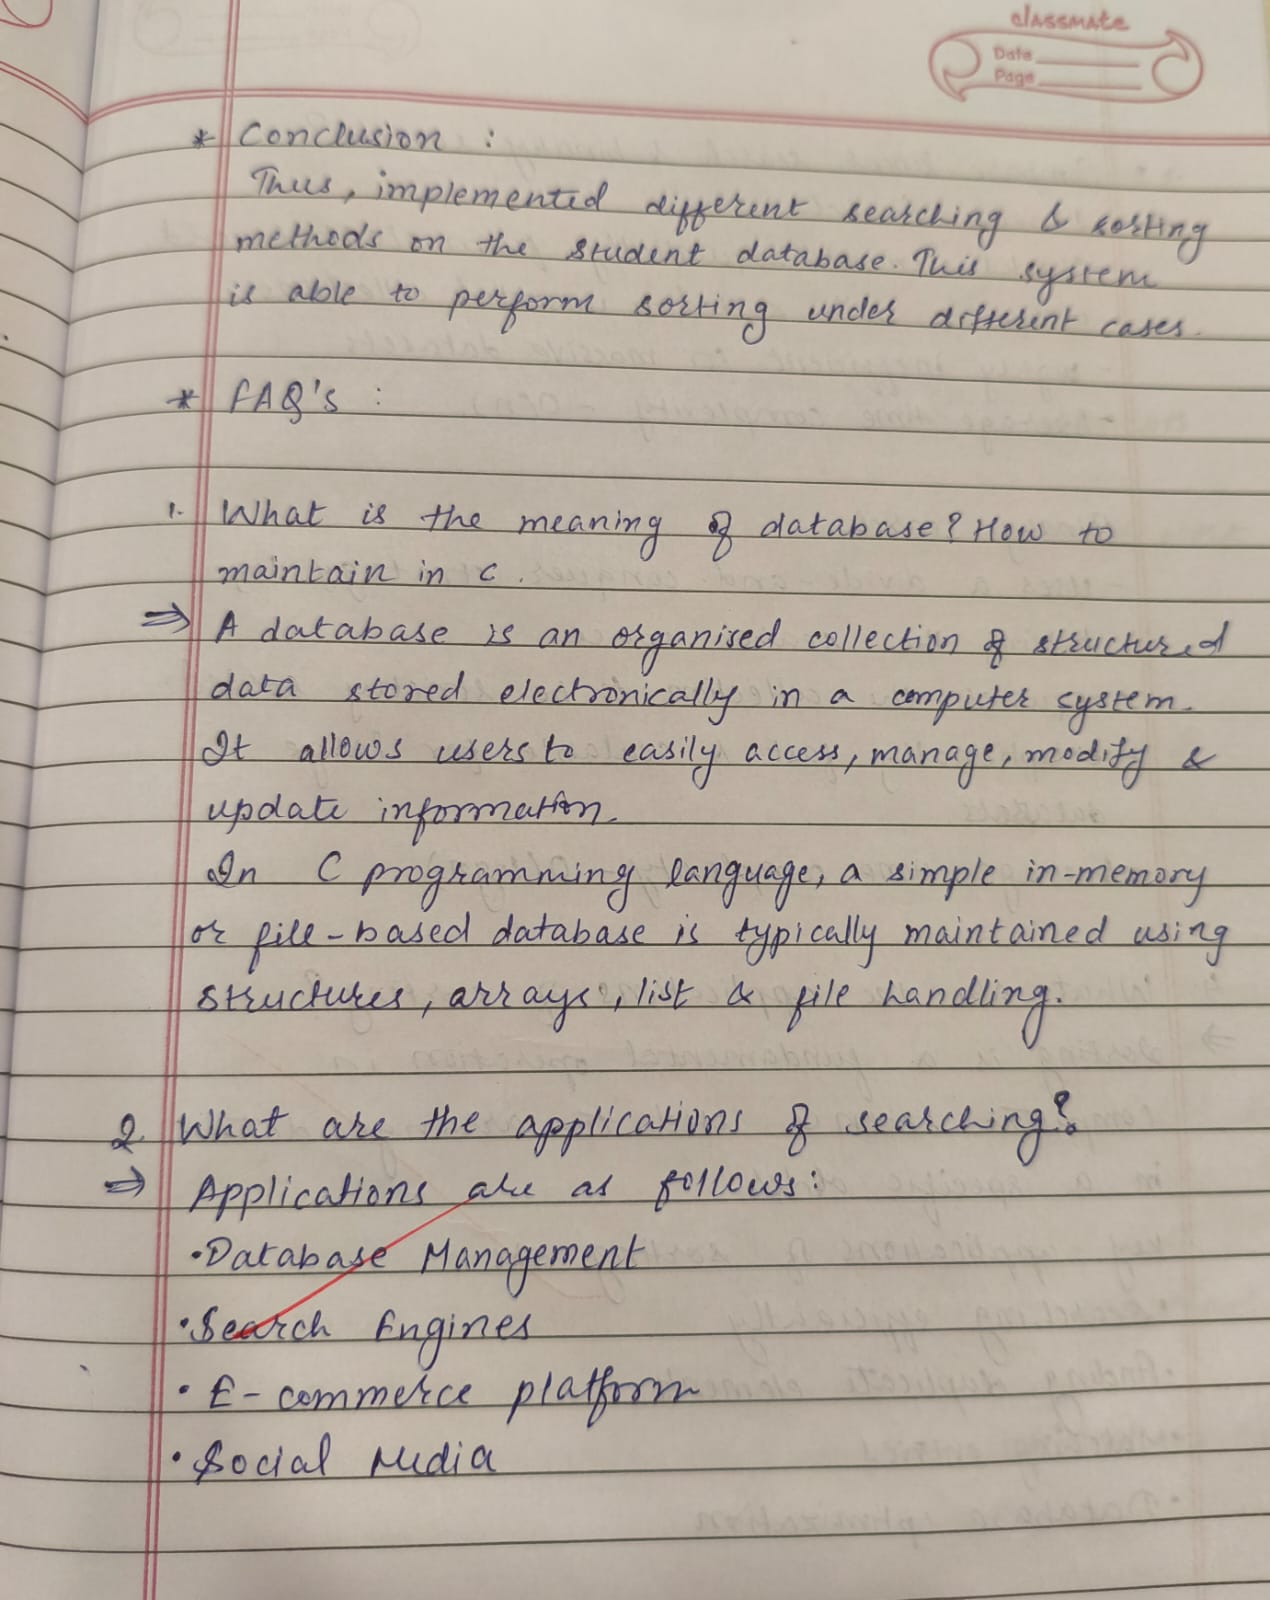 classmate
Date
Page
* Conclusion :
Thus, implemented different searching & sorting
methods on the student database. This system
is able to perform sorting under different cases.
* FAQ's :
1. What is the meaning of database? How to
maintain in c.
⇒ A database is an organised collection of structured
data stored electronically in a computer system.
It allows users to easily access, manage, modify &
update information.
In C programming language, a simple in-memory
or file-based database is typically maintained using
structures, arrays, list & file handling.
2. What are the applications of searching?
⇒ Applications are as follows:
• Database Management
• Search Engines
• E-commerce platform
• Social Media